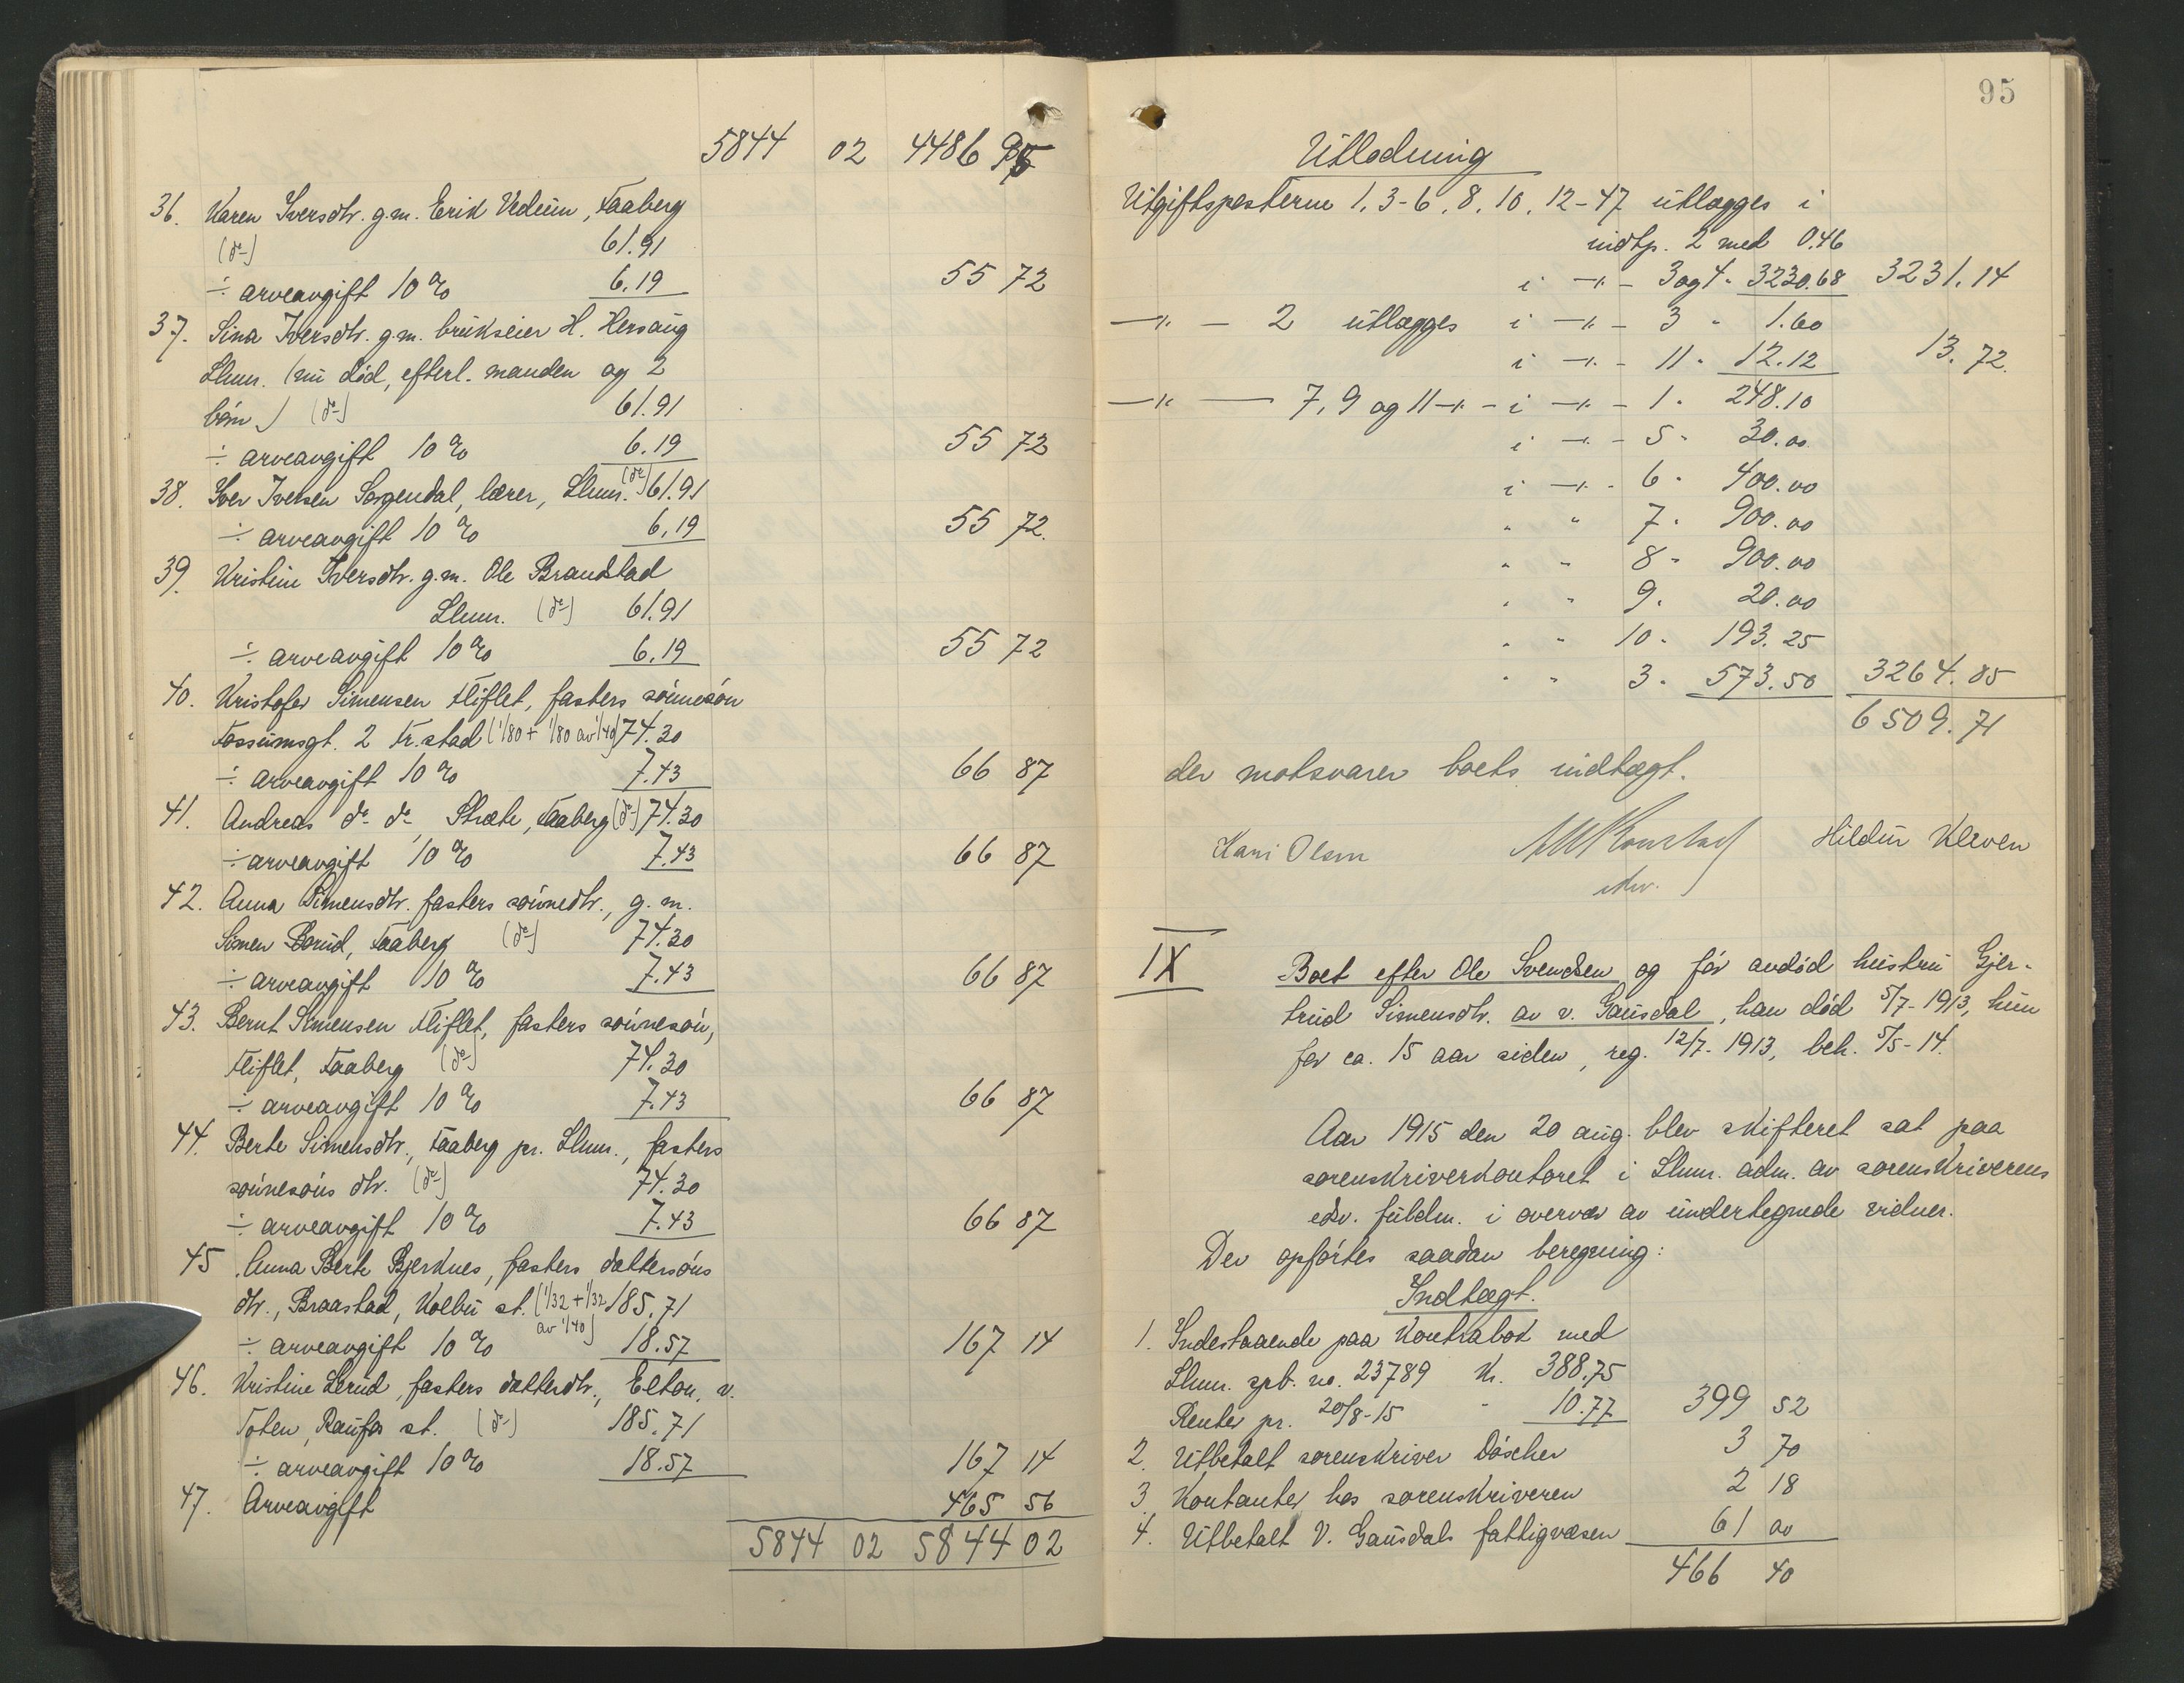 5844 02 4486 95
36. Karen Iversdtr. g.m. Erik Vedum, Faaberg
(do) 61.91
÷ arveavgift 10 % 6.19 55 72
37. Sina Iversdtr. g.m. brukseier H. Hersaug
Lhmr. (nu død, efterl. manden og 2
børn) (do) 61.91
÷ arveavgift 10 % 6.19 55 72
38. Iver Iversen Sorgendal, lærer, Lhmr. (do) 61.91
÷ arveavgift 10 % 6.19 55 72.
39. Kristine Iversdtr. g.m. Ole Brandstad
Lhmr. (do) 61.91
÷ arveavgift 10 % 6.19 55 72
40. Kristofer Simensen Fliflet, fasters sønnesøn
Fossumsgt. 2 Fr.stad (1/80 + 1/80 av 1/40) 74.30
÷ arveavgift 10 % 7.43 66 87
41. Andreas do do, Stræte, Faaberg (do) 74.30
÷ arveavgift 10 % 7.43 66 87
42. Anna Simensdtr. fasters sønnedtr., g.m.
Simen Borud, Faaberg (do) 74.30
÷ arveavgift 10 % 7.43 66 87
43. Bernt Simensen Fliflet, fasters sønnesøn,
Fliflet, Faaberg (do) 74.30
÷ arveavgift 10 % 7.43 66 87
44. Berte Simensdtr., Faaberg pr. Lhmr., fasters
sønnesøns dtr. (do) 74.30
÷ arveavgift 10 % 7.43 66 87
45. Anna Berte Bjerknes, fasters dattersøns
dtr., Braastad, Kolbu st. (1/32 + 1/32 185.71
av 1/40)
÷ arveavgift 10 % 18.57 167 14
46. Kristine Lerud, fasters datterdtr., Elton, v.
Toten, Raufos st. (do) 185.71
÷ arveavgift 10 % 18.57 167 14
47. Arveavgift 465 56
5844 02 5844 02
95
Utlodning
Utgiftsposterne 1, 3-6, 8, 10, 12-47 utlægges i
indtp. 2 med 0.46
i -"- 3 og 4 - 3230.68 3231.14
-"- - 2 utlægges i -"- 3 - 1.60
i -"- 11 - 12.12 13.72.
-"- 7, 9 og 11 -"- i -"- 1 - 248.10
i -"- 5 - 30.00
i -"- 6 - 400.00
" " 7 - 900.00
" " 8 - 900.00
" " 9 - 20.00
" " 10 - 193.25
" " 3 - 573.50 3264.85
6509.71
der motsvarer boets indtægt.
Kari Olsen Hildur Kleven
IX Boet efter Ole Svendsen og før avdød hustru Gjer-
trud Simensdtr. av v. Gausdal, han død 5/7-1913, hun
for ca. 15 aar siden, reg. 12/7-1913, beh. 5/5-14.
Aar 1915 den 20 aug. blev skifteret sat paa
sorenskriverkontoret i Lhmr. adm. av sorenskriverens
edsv. fuldm. i overvær av undertegnede vidner.
Der opførtes saadan beregning:
Indtægt.
1. Indestaaende paa kontrabok med
Lhmr. spb. no. 23789 kr. 388.75
Renter pr. 20/8-15 " 10.77 399 52
2. Utbetalt sorenskriver Döscher 3 70
3. Kontanter hos sorenskriveren 2 18
4. Utbetalt V. Gausdals fattigvæsen 61 00
466 40